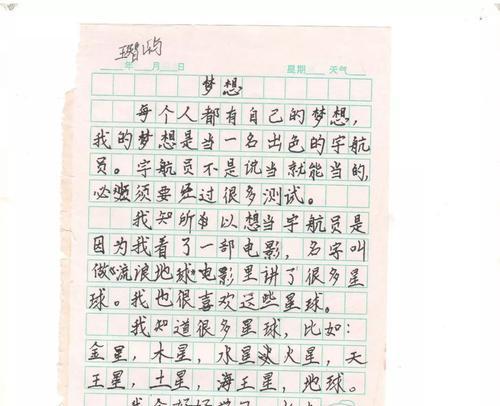 王智屿
年 月 日 星期 天气
梦想
每个人都有自己的梦想，
我的梦想是当一名出色的宇航
员。宇航员不是说当就能当的，
必须要经过很多测试。
我之所以想当宇航员是
因为我看了一部电影，名字叫
做《流浪地球》电影里讲了很多星
球。我也很喜欢这些星球。
我知道很多星球，比如：
金星，木星，水星火星，天
王星，土星，海王星，地球。